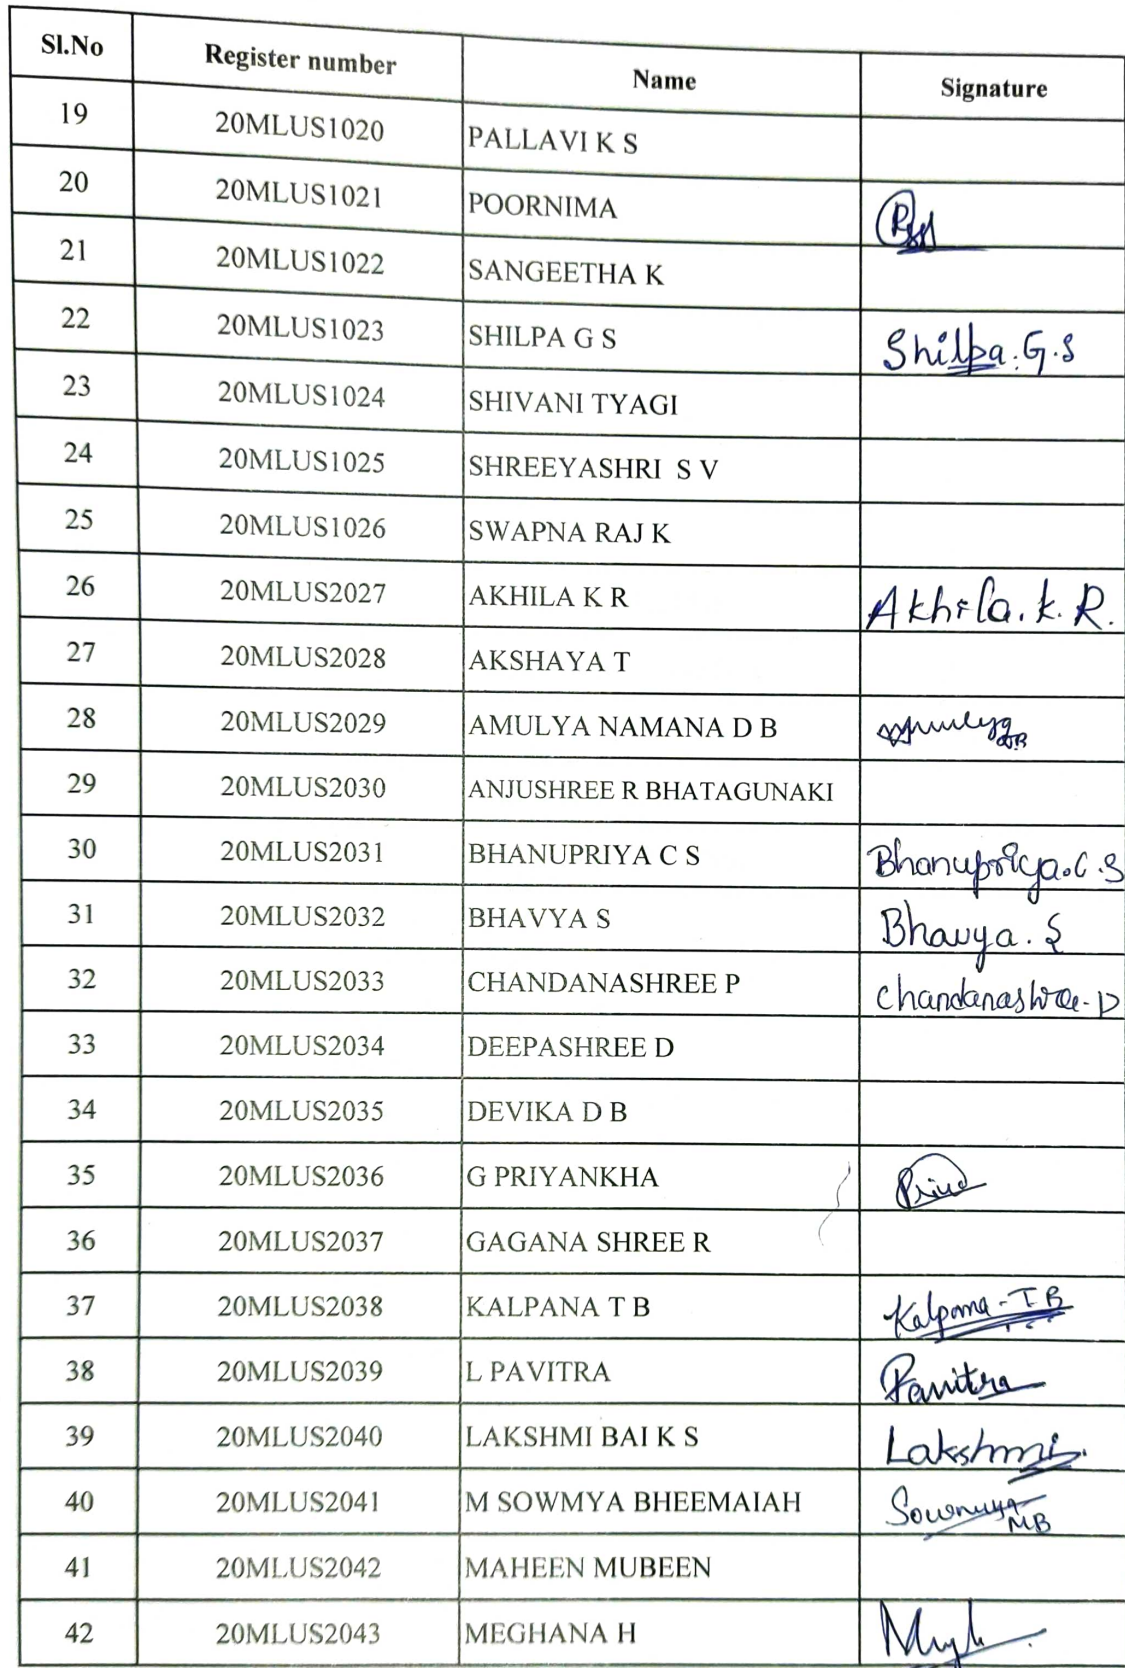 Sl.No Register number Name Signature
19 20MLUS1020 PALLAVI K S
20 20MLUS1021 POORNIMA
21 20MLUS1022 SANGEETHA K
22 20MLUS1023 SHILPA G S Shilpa.G.S
23 20MLUS1024 SHIVANI TYAGI
24 20MLUS1025 SHREEYASHRI S V
25 20MLUS1026 SWAPNA RAJ K
26 20MLUS2027 AKHILA K R Akhila.K.R.
27 20MLUS2028 AKSHAYA T
28 20MLUS2029 AMULYA NAMANA D B
29 20MLUS2030 ANJUSHREE R BHATAGUNAKI
30 20MLUS2031 BHANUPRIYA C S Bhanupriya.C.S
31 20MLUS2032 BHAVYA S Bhavya.S
32 20MLUS2033 CHANDANASHREE P Chandanashree-P
33 20MLUS2034 DEEPASHREE D
34 20MLUS2035 DEVIKA D B
35 20MLUS2036 G PRIYANKHA
36 20MLUS2037 GAGANA SHREE R
37 20MLUS2038 KALPANA T B Kalpana-T B
38 20MLUS2039 L PAVITRA Pavitra
39 20MLUS2040 LAKSHMI BAI K S Lakshmi
40 20MLUS2041 M SOWMYA BHEEMAIAH Sowmya MB
41 20MLUS2042 MAHEEN MUBEEN
42 20MLUS2043 MEGHANA H